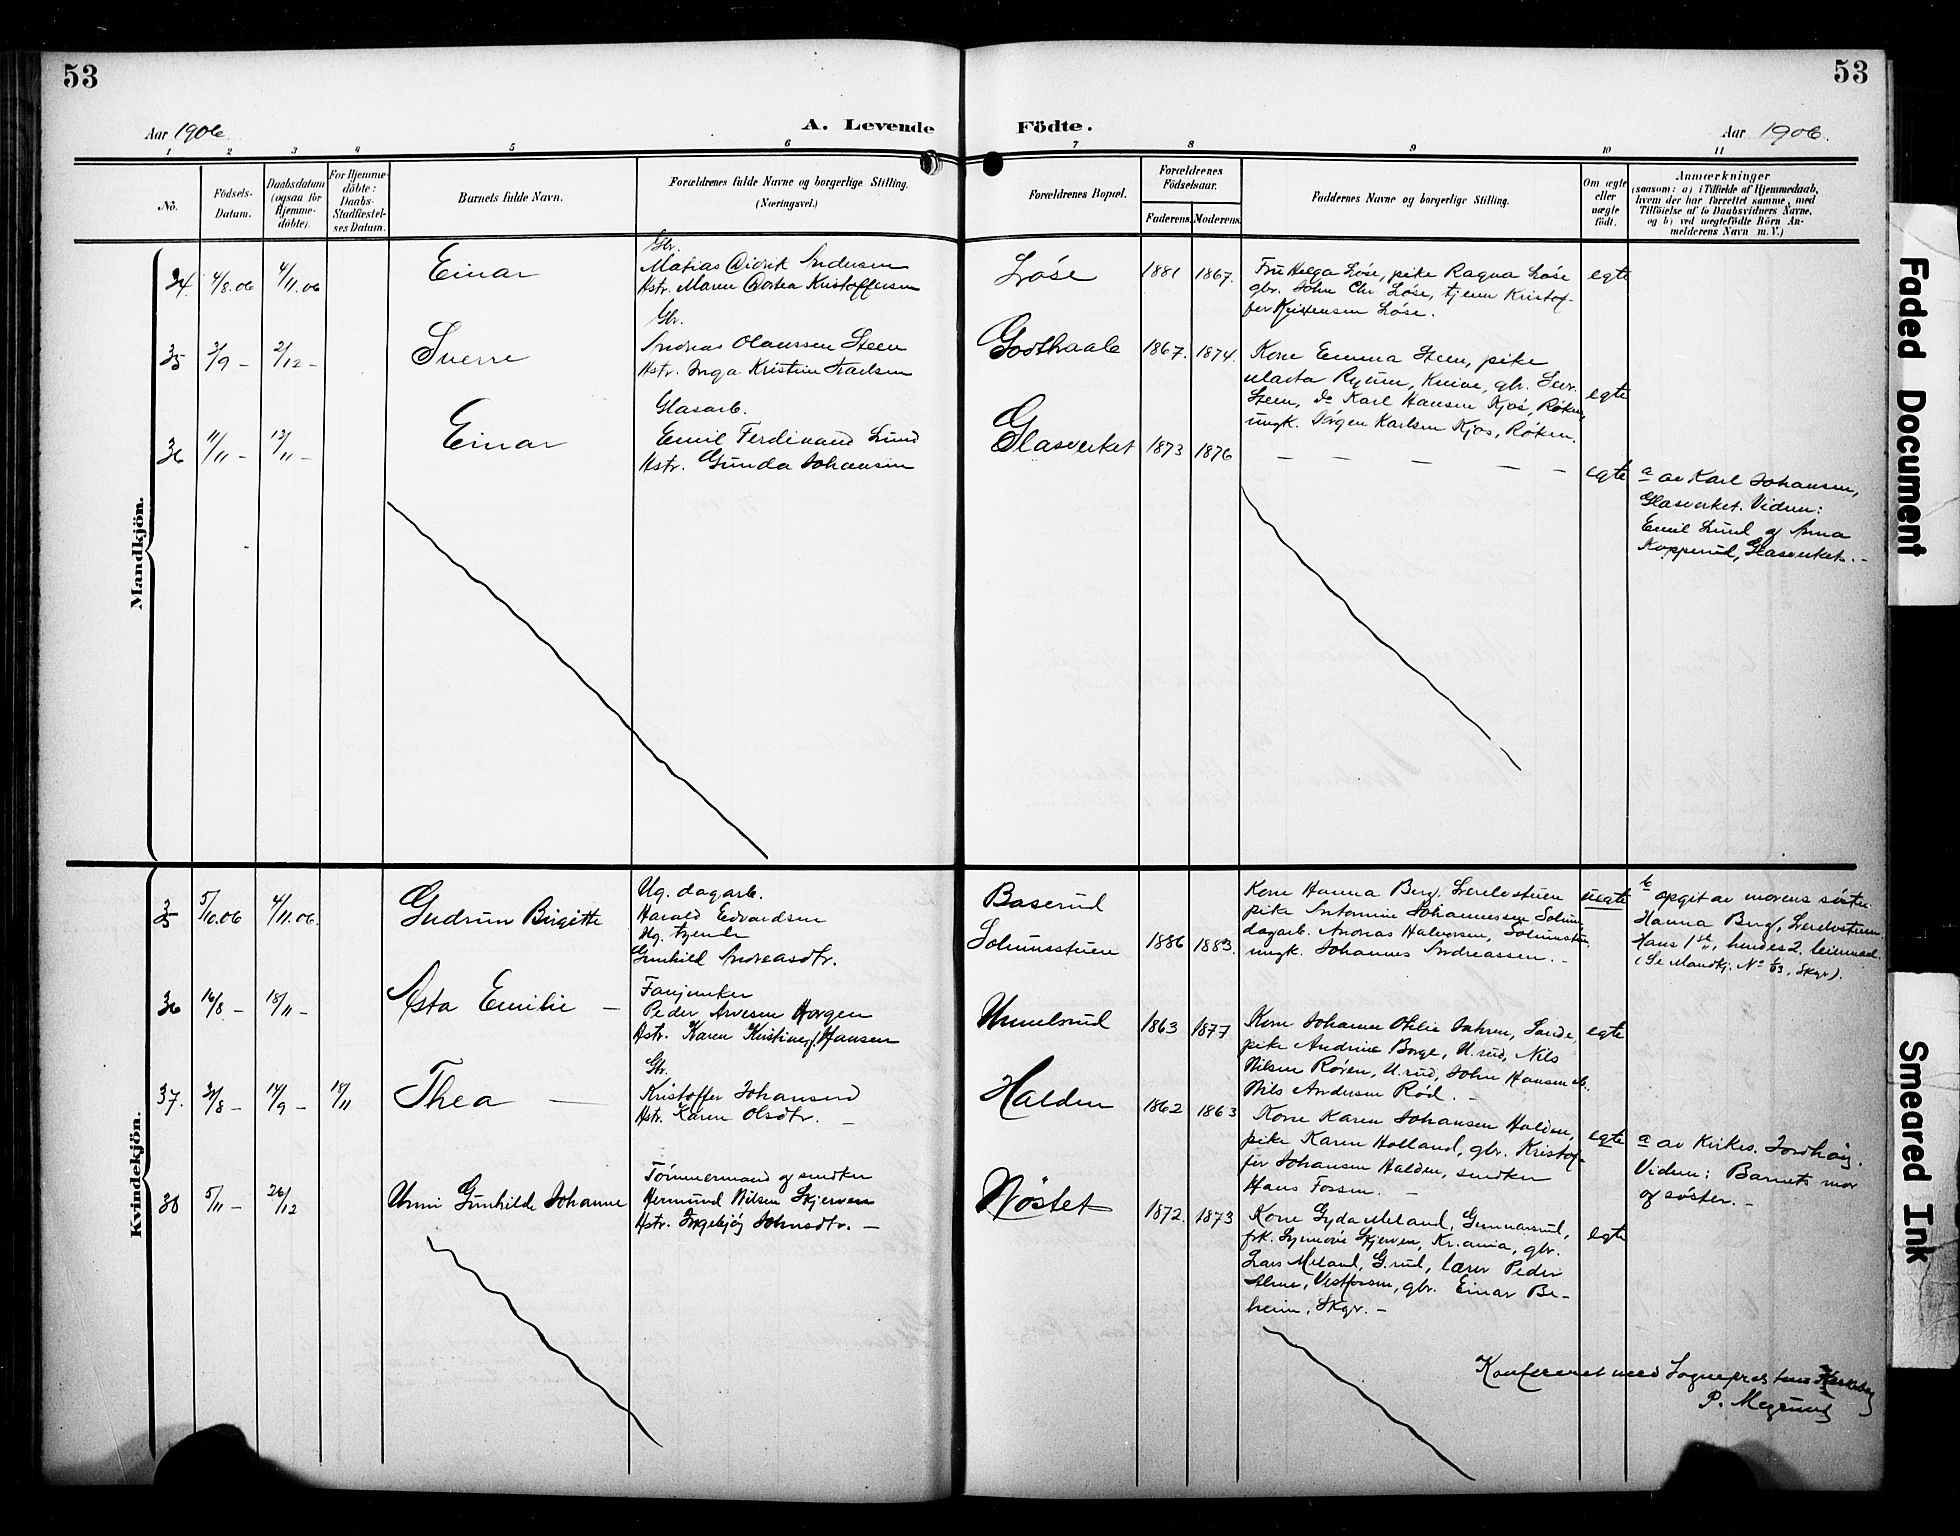 53
53
Aar 1906
A. Levende
Födte.
Aar 1906.
1 2 3 4 5 6 7 8 9 10 11
Nö.
Födsels-
Datum.
Daabsdatum
(ogsaa for
Hjemme-
döbte).
For Hjemme-
döbte:
Daabs-
Stadfæstel-
ses Datum.
Barnets fulde Navn.
Forældrenes fulde Navne og borgerlige Stilling.
(Næringsvei.)
Forældrenes Bopæl.
Forældrenes
Födselsaar.
Faderens. Moderens.
Faddernes Navne og borgerlige Stilling.
Om ægte
eller
uægte
födt.
Anmærkninger
(saasom: a) i Tilfælde af Hjemmedaab,
hvem der har forrettet samme, med
Tilföielse af to Daabsvidners Navne.
og b) ved uægtefödte Börn An-
melderens Navn m. V.)
Mandkjön.
34. 4/8.06 4/11.06
Einar
Gbr.
Matias Didrik Andersen
Hstr. Maren Dortea Kristoffersen
Løse
1881 1867.
Fru Helga Løse, pike Ragna Løse
gbr. John Chr. Løse, tjener Kristof-
fer Kristensen Løse.
egte
35 3/9 - 2/12 -
Sverre
Gbr.
Andreas Olaussen Steen
Hstr. Inga Kristine Karlsen
Godthaab
1867. 1874.
Kone Emma Steen, pike
Marta Ryum, Knive, gbr. Sev.
Steen, do Karl Hansen Kjøs, Røken,
ungk. Jörgen Karlsen Kjøs, Røken.
egte
36 11/11 - 12/11 -
Einar
Glasarb.
Emil Ferdinand Lund
Hstr. Gunda Johansen
Glasverket
1873 1876
- - - - -
egte
a av Karl Johansen,
Glasverket. Vidner:
Emil Lund og Anna
Kopperud, Glasverket. -
Kvindekjön.
35 5/10.06 4/11.06.
Gudrun Birgitte
Ug. dagarb.
Harald Edvardsen
Ug. tjende
Gunhild Andreasdtr.
Baserud
Solumsstuen
1886 1883.
Kone Hanna Berg, Lerdvstuen
pike Antonine Johannessen Solum
dagarb. Andreas Halvorsen, Solumstu.
ungk. Johannes Andreassen. -
uegte
b opgit av morens søster
Hanna Berg, Lerdvstuen.
Hans 1ste, hendes 2. leiermaal.
(Se Mandkj. No 1/03, Skgr.).
36 16/8 - 18/11 -
Asta Emilie -
Fanjunker
Peder Arvesen Horgen
Hstr. Karen Kristine f. Hansen
Ummelsrud
1863 1877
Kone Johanne Otilie Sahren, Sande,
pike Andrine Borge, U.rud, Nils
Nilsen Røren, U.rud, John Hansen
Nils Andersen Rød. -
egte
37. 14/9 - 18/11
Thea -
Gbr.
Kristoffer Johansen
Hstr. Karen Olsdtr. -
Halden
1862 1863
Kone Karen Johansen Halden,
pike Karen Holland, gbr. Kristof-
fer Johansen Halden, snedker
Hans Fossen. -
egte
a av Kirkes. Jordhøy.
Vidner: Barnets mor
og søster. -
38 5/11 - 26/12
Unni Gunhilde Johanne
Tømmermand og snedker
Hermund Nilsen Skjerven
Hstr. Ingebjøg Johnsdtr. -
Nöstet
1872. 1873
Kone Gyda Meland, Gunnarsrud,
frk. Synnøve Skjerven, Kr.ania, gbr.
Lars Meland, G.rud, lærer Peder
Alme, Vestfossen, gbr. Einar Be-
heim, Skgr. -
egte
Konfereret med Sogneprestens
P. Megrund
Faded Document
here
Smeared Ink